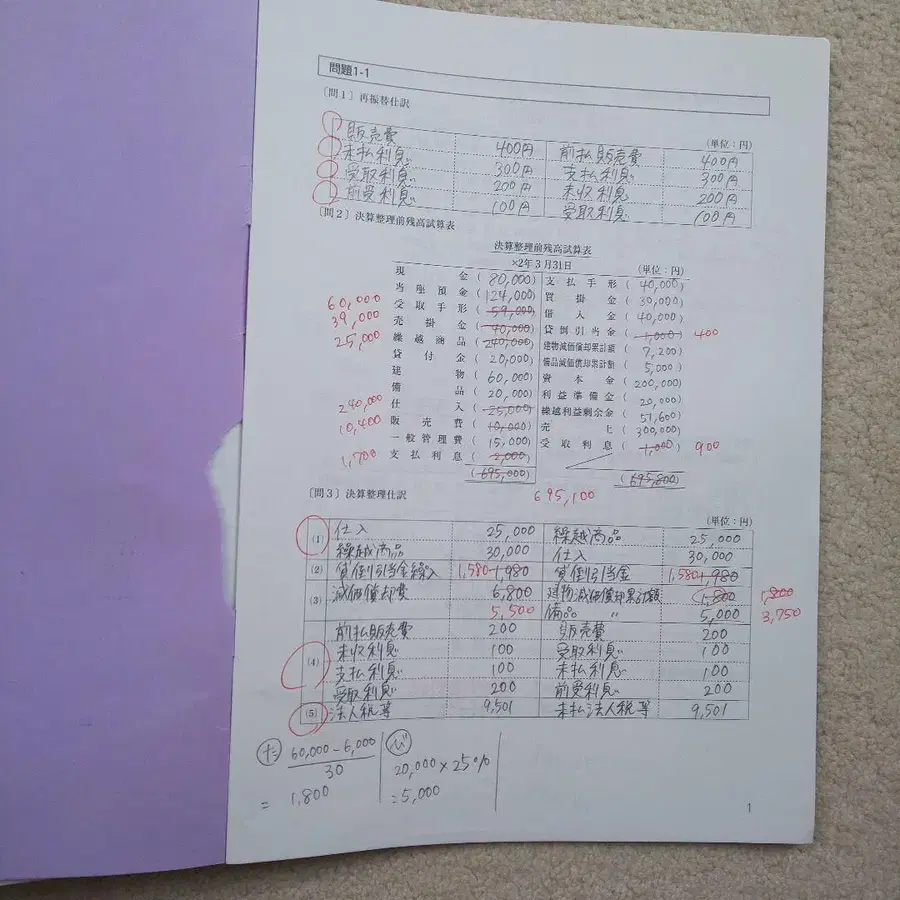 問題1-1
〔問1〕再振替仕訳
(単位:円)
販売費 400円 前払販売費 400円
未払利息 300円 支払利息 300円
受取利息 200円 未収利息 200円
前受利息 100円 受取利息 100円
〔問2〕決算整理前残高試算表
決算整理前残高試算表
×2年3月31日 (単位:円)
現金 (80,000) 支払手形 (40,000)
当座預金 (124,000) 買掛金 (30,000)
60,000 受取手形 (59,000) 借入金 (40,000)
39,000 売掛金 (40,000) 貸倒引当金 (1,000) 400
25,000 繰越商品 (240,000) 建物減価償却累計額 (7,200)
貸付金 (20,000) 備品減価償却累計額 (5,000)
建物 (60,000) 資本金 (200,000)
備品 (20,000) 利益準備金 (20,000)
240,000 仕入 (25,000) 繰越利益剰余金 (51,600)
10,400 販売費 (10,000) 売上 (300,000)
一般管理費 (15,000) 受取利息 (1,000) 900
1,700 支払利息 (2,000)
(695,000) (695,800)
695,100
〔問3〕決算整理仕訳
(単位:円)
(1) 仕入 25,000 繰越商品 25,000
繰越商品 30,000 仕入 30,000
(2) 貸倒引当金繰入 1,580 1,980 貸倒引当金 1,580 1,980
(3) 減価償却費 6,800 建物減価償却累計額 1,800 1,800
5,500 備品 〃 5,000 3,750
前払販売費 200 販売費 200
(4) 未収利息 100 受取利息 100
支払利息 100 未払利息 100
受取利息 200 前受利息 200
(5) 法人税等 9,501 未払法人税等 9,501
た 60,000-6,000
30
= 1,800
び
20,000×25%
=5,000
1